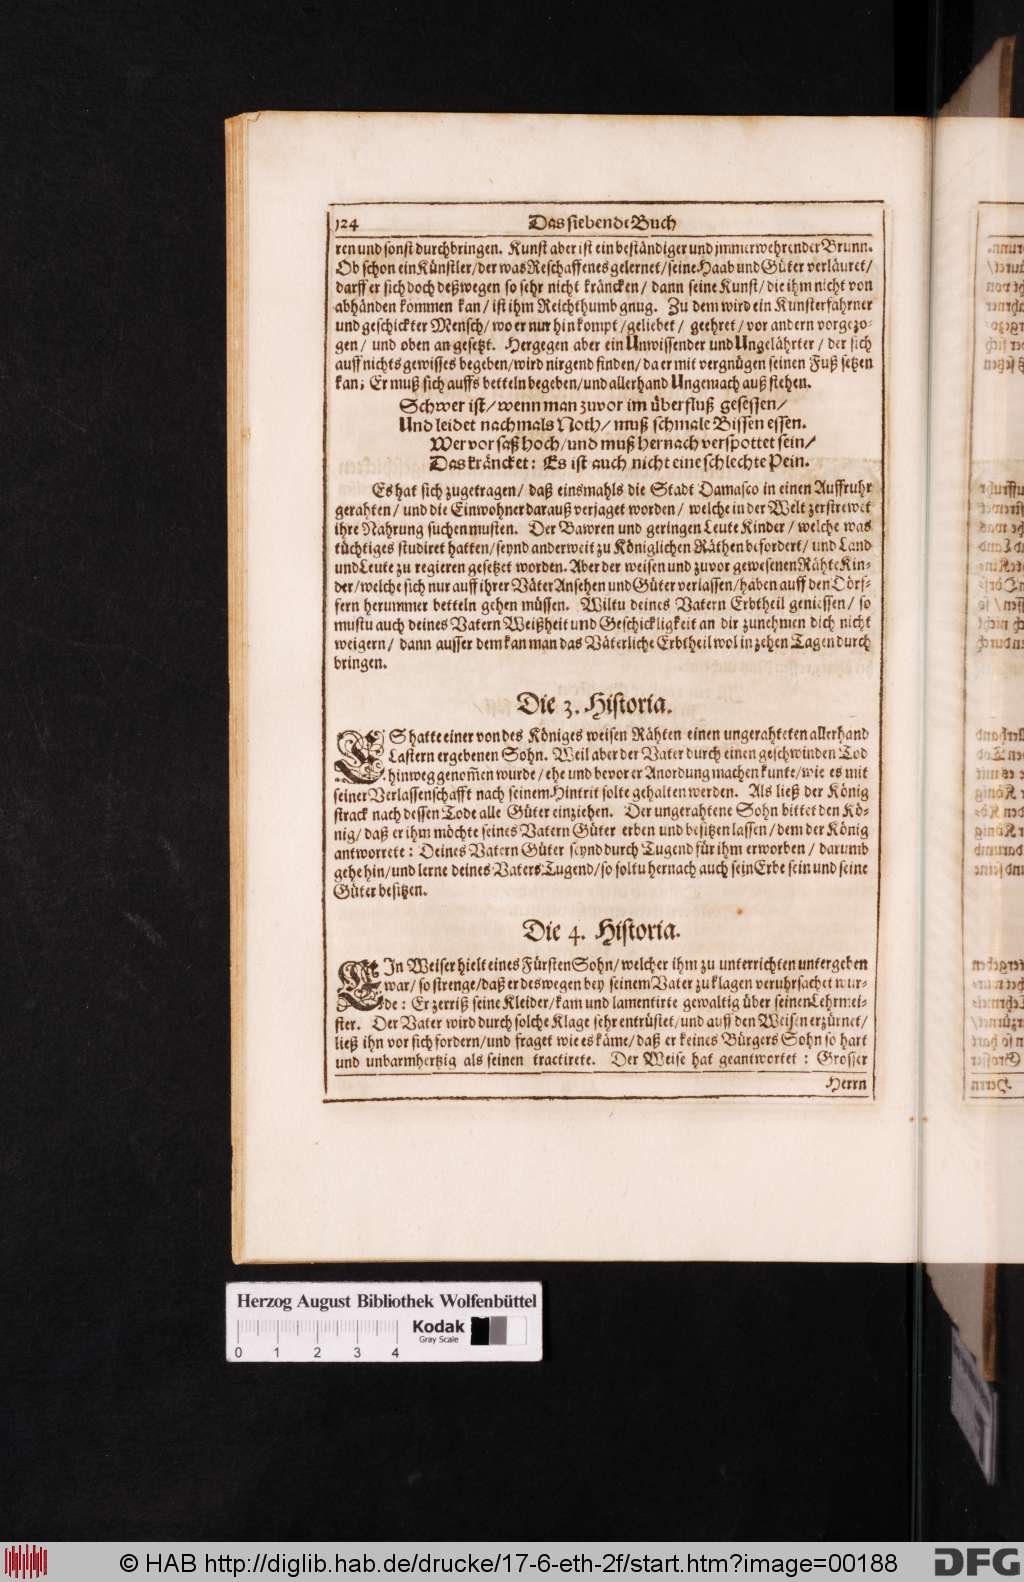 124 Das siebende Buch
ren und sonst durchbringen. Kunst aber ist ein beständiger und jmmerwehrender Brunn.
Ob schon ein Künstler/ der was Reschaffenes gelernet/ seine Haab und Güter verläuret/
darff er sich doch deßwegen so sehr nicht kräncken/ dann seine Kunst/ die ihm nicht von
abhänden kommen kan/ ist ihm Reichthumb gnug. Zu dem wird ein Kunsterfahrner
und geschickter Mensch/ wo er nur hin kompt/ geliebet/ geehret/ vor andern vorgezo-
gen/ und oben an gesetzt. Hergegen aber ein Unwissender und Ungelährter/ der sich
auff nichts gewisses begeben/ wird nirgend finden/ da er mit vergnügen seinen Fuß setzen
kan; Er muß sich auffs betteln begeben/ und allerhand Ungemach auß stehen.
Schwer ist/ wenn man zuvor im überfluß gesessen/
Und leidet nachmals Noth/ muß schmale Bissen essen.
Wer vor saß hoch/ und muß hernach verspottet sein/
Das kräncket: Es ist auch nicht eine schlechte Pein.
Es hat sich zugetragen/ daß einsmahls die Stadt Damasco in einen Auffruhr
gerahten/ und die Einwohner darauß verjaget worden/ welche in der Welt zerstrewet
ihre Nahrung suchen musten. Der Bawren und geringen Leute Kinder/ welche was
tüchtiges studiret hatten/ seynd anderweit zu Königlichen Räthen befordert/ und Land
und Leute zu regieren gesetzet worden. Aber der weisen und zuvor gewesenen Rähte Kin-
der/ welche sich nur auff ihrer Väter Ansehen und Güter verlassen/ haben auff den Dörf-
fern herummer betteln gehen müssen. Wiltu deines Vatern Erbtheil geniessen/ so
mustu auch deines Vatern Weißheit und Geschickligkeit an dir zunehmen dich nicht
weigern/ dann ausser dem kan man das Väterliche Erbtheil wol in zehen Tagen durch
bringen.
Die 3. Historia.
ES hatte einer von des Königes weisen Rähten einen ungerahteten allerhand
Lastern ergebenen Sohn. Weil aber der Vater durch einen geschwinden Tod
hinweg genom̃en wurde/ ehe und bevor er Anordung machen kunte/ wie es mit
seiner Verlassenschafft nach seinem Hintrit solte gehalten werden. Als ließ der König
strack nach dessen Tode alle Güter einziehen. Der ungerahtene Sohn bittet den Kö-
nig/ daß er ihm möchte seines Vatern Güter erben und besitzen lassen/ dem der König
antworrete: Deines Vatern Güter seynd durch Tugend für ihm erworben/ darumb
gehe hin/ und lerne deines Vaters Tugend/ so soltu hernach auch sein Erbe sein und seine
Güter besitzen.
Die 4. Historia.
EIn Weiser hielt eines Fürsten Sohn/ welcher ihm zu unterrichten untergeben
war/ so strenge/ daß er deswegen bey seinem Vater zu klagen veruhrsachet wur-
de: Er zerriß seine Kleider/ kam und lamentirte gewaltig über seinen Lehrmei-
ster. Der Vater wird durch solche Klage sehr entrüstet/ und auff den Weisen erzürnet/
ließ ihn vor sich fordern/ und fraget wie es käme/ daß er keines Bürgers Sohn so hart
und unbarmhertzig als seinen tractirete. Der Weise hat geantwortet: Grosser
Herrn
Herzog August Bibliothek Wolfenbüttel
Kodak
Gray Scale
0 1 2 3 4
© HAB http://diglib.hab.de/drucke/17-6-eth-2f/start.htm?image=00188
DFG